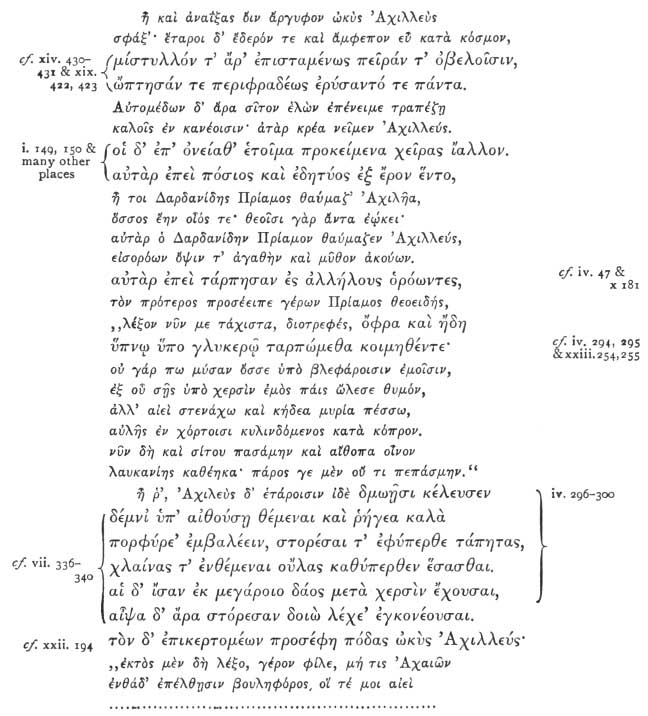 ἦ καὶ ἀναΐξας ὄιν ἄργυφον ὠκὺς Ἀχιλλεὺς
σφάξ’· ἕταροι δ’ ἔδερόν τε καὶ ἄμφεπον εὖ κατὰ κόσμον,
cf. xiv. 430–
431 & xix.
422, 423
μίστυλλόν τ’ ἄρ’ ἐπισταμένως πεῖράν τ’ ὀβελοῖσιν,
ὤπτησάν τε περιφραδέως ἐρύσαντό τε πάντα.
Αὐτομέδων δ’ ἄρα σῖτον ἑλὼν ἐπένειμε τραπέζῃ
καλοῖς ἐν κανέοισιν· ἀτὰρ κρέα νεῖμεν Ἀχιλλεύς.
i. 149, 150 &
many other
places
οἱ δ’ ἐπ’ ὀνείαθ’ ἑτοῖμα προκείμενα χεῖρας ἴαλλον.
αὐτὰρ ἐπεὶ πόσιος καὶ ἐδητύος ἐξ ἔρον ἕντο,
ἦ τοι Δαρδανίδης Πρίαμος θαύμαζ’ Ἀχιλῆα,
ὅσσος ἔην οἷός τε· θεοῖσι γὰρ ἄντα ἐῴκει·
αὐτὰρ ὁ Δαρδανίδην Πρίαμον θαύμαζεν Ἀχιλλεύς,
εἰσορόων ὄψιν τ’ ἀγαθὴν καὶ μῦθον ἀκούων.
αὐτὰρ ἐπεὶ τάρπησαν ἐς ἀλλήλους ὁρόωντες,
cf. iv. 47 &
x 181
τὸν πρότερος προσέειπε γέρων Πρίαμος θεοειδής,
„λέξον νῦν με τάχιστα, διοτρεφές, ὄφρα καὶ ἤδη
ὕπνῳ ὕπο γλυκερῷ ταρπώμεθα κοιμηθέντε·
cf. iv. 294, 295
& xxiii. 254, 255
οὐ γάρ πω μύσαν ὄσσε ὑπὸ βλεφάροισιν ἐμοῖσιν,
ἐξ οὗ σῇς ὑπὸ χερσὶν ἐμὸς πάις ὤλεσε θυμόν,
ἀλλ’ αἰεὶ στενάχω καὶ κήδεα μυρία πέσσω,
αὐλῆς ἐν χόρτοισι κυλινδόμενος κατὰ κόπρον.
νῦν δὴ καὶ σίτου πασάμην καὶ αἴθοπα οἶνον
λαυκανίης καθέηκα· πάρος γε μὲν οὔ τι πεπάσμην.“
ἦ ῥ’, Ἀχιλεὺς δ’ ἑτάροισιν ἰδὲ δμωῇσι κέλευσεν
iv. 296–300
δέμνι’ ὑπ’ αἰθούσῃ θέμεναι καὶ ῥήγεα καλὰ
πορφύρε’ ἐμβαλέειν, στορέσαι τ’ ἐφύπερθε τάπητας,
cf. vii. 336–
340
χλαίνας τ’ ἐνθέμεναι οὔλας καθύπερθεν ἕσασθαι.
αἱ δ’ ἴσαν ἐκ μεγάροιο δάος μετὰ χερσὶν ἔχουσαι,
αἶψα δ’ ἄρα στόρεσαν δοιὼ λέχε’ ἐγκονέουσαι.
cf. xxii. 194
τὸν δ’ ἐπικερτομέων προσέφη πόδας ὠκὺς Ἀχιλλεύς·
„ἐκτὸς μὲν δὴ λέξο, γέρον φίλε, μή τις Ἀχαιῶν
ἐνθάδ’ ἐπέλθησιν βουληφόρος, οἵ τέ μοι αἰεὶ